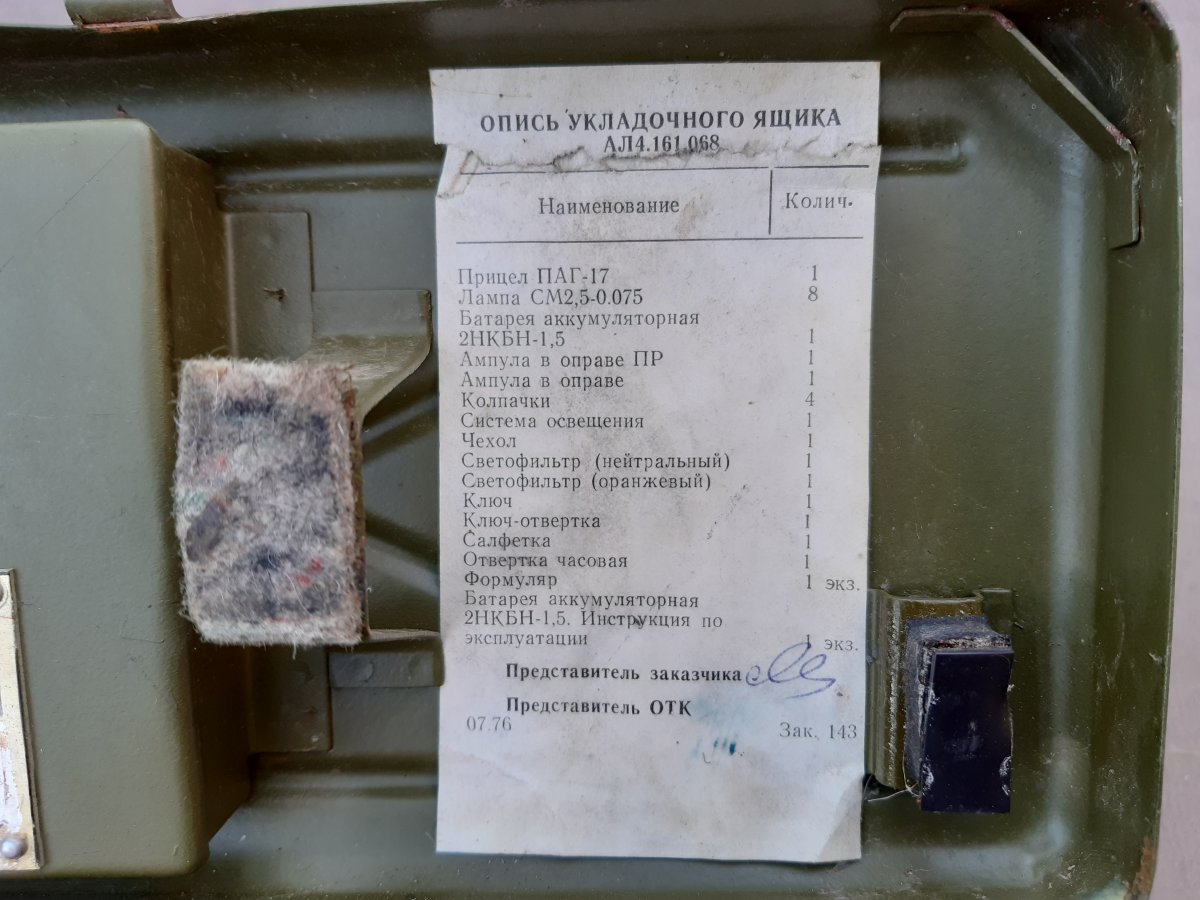 ОПИСЬ УКЛАДОЧНОГО ЯЩИКА
АЛ4.161.068
Наименование Колич.
Прицел ПАГ-17 1
Лампа СМ2,5-0.075 8
Батарея аккумуляторная
2НКБН-1,5 1
Ампула в оправе ПР 1
Ампула в оправе 1
Колпачки 4
Система освещения 1
Чехол 1
Светофильтр (нейтральный) 1
Светофильтр (оранжевый) 1
Ключ 1
Ключ-отвертка 1
Салфетка 1
Отвертка часовая 1
Формуляр 1 экз.
Батарея аккумуляторная
2НКБН-1,5. Инструкция по
эксплуатации 1 экз.
Представитель заказчика
Представитель ОТК
07.76 Зак. 143